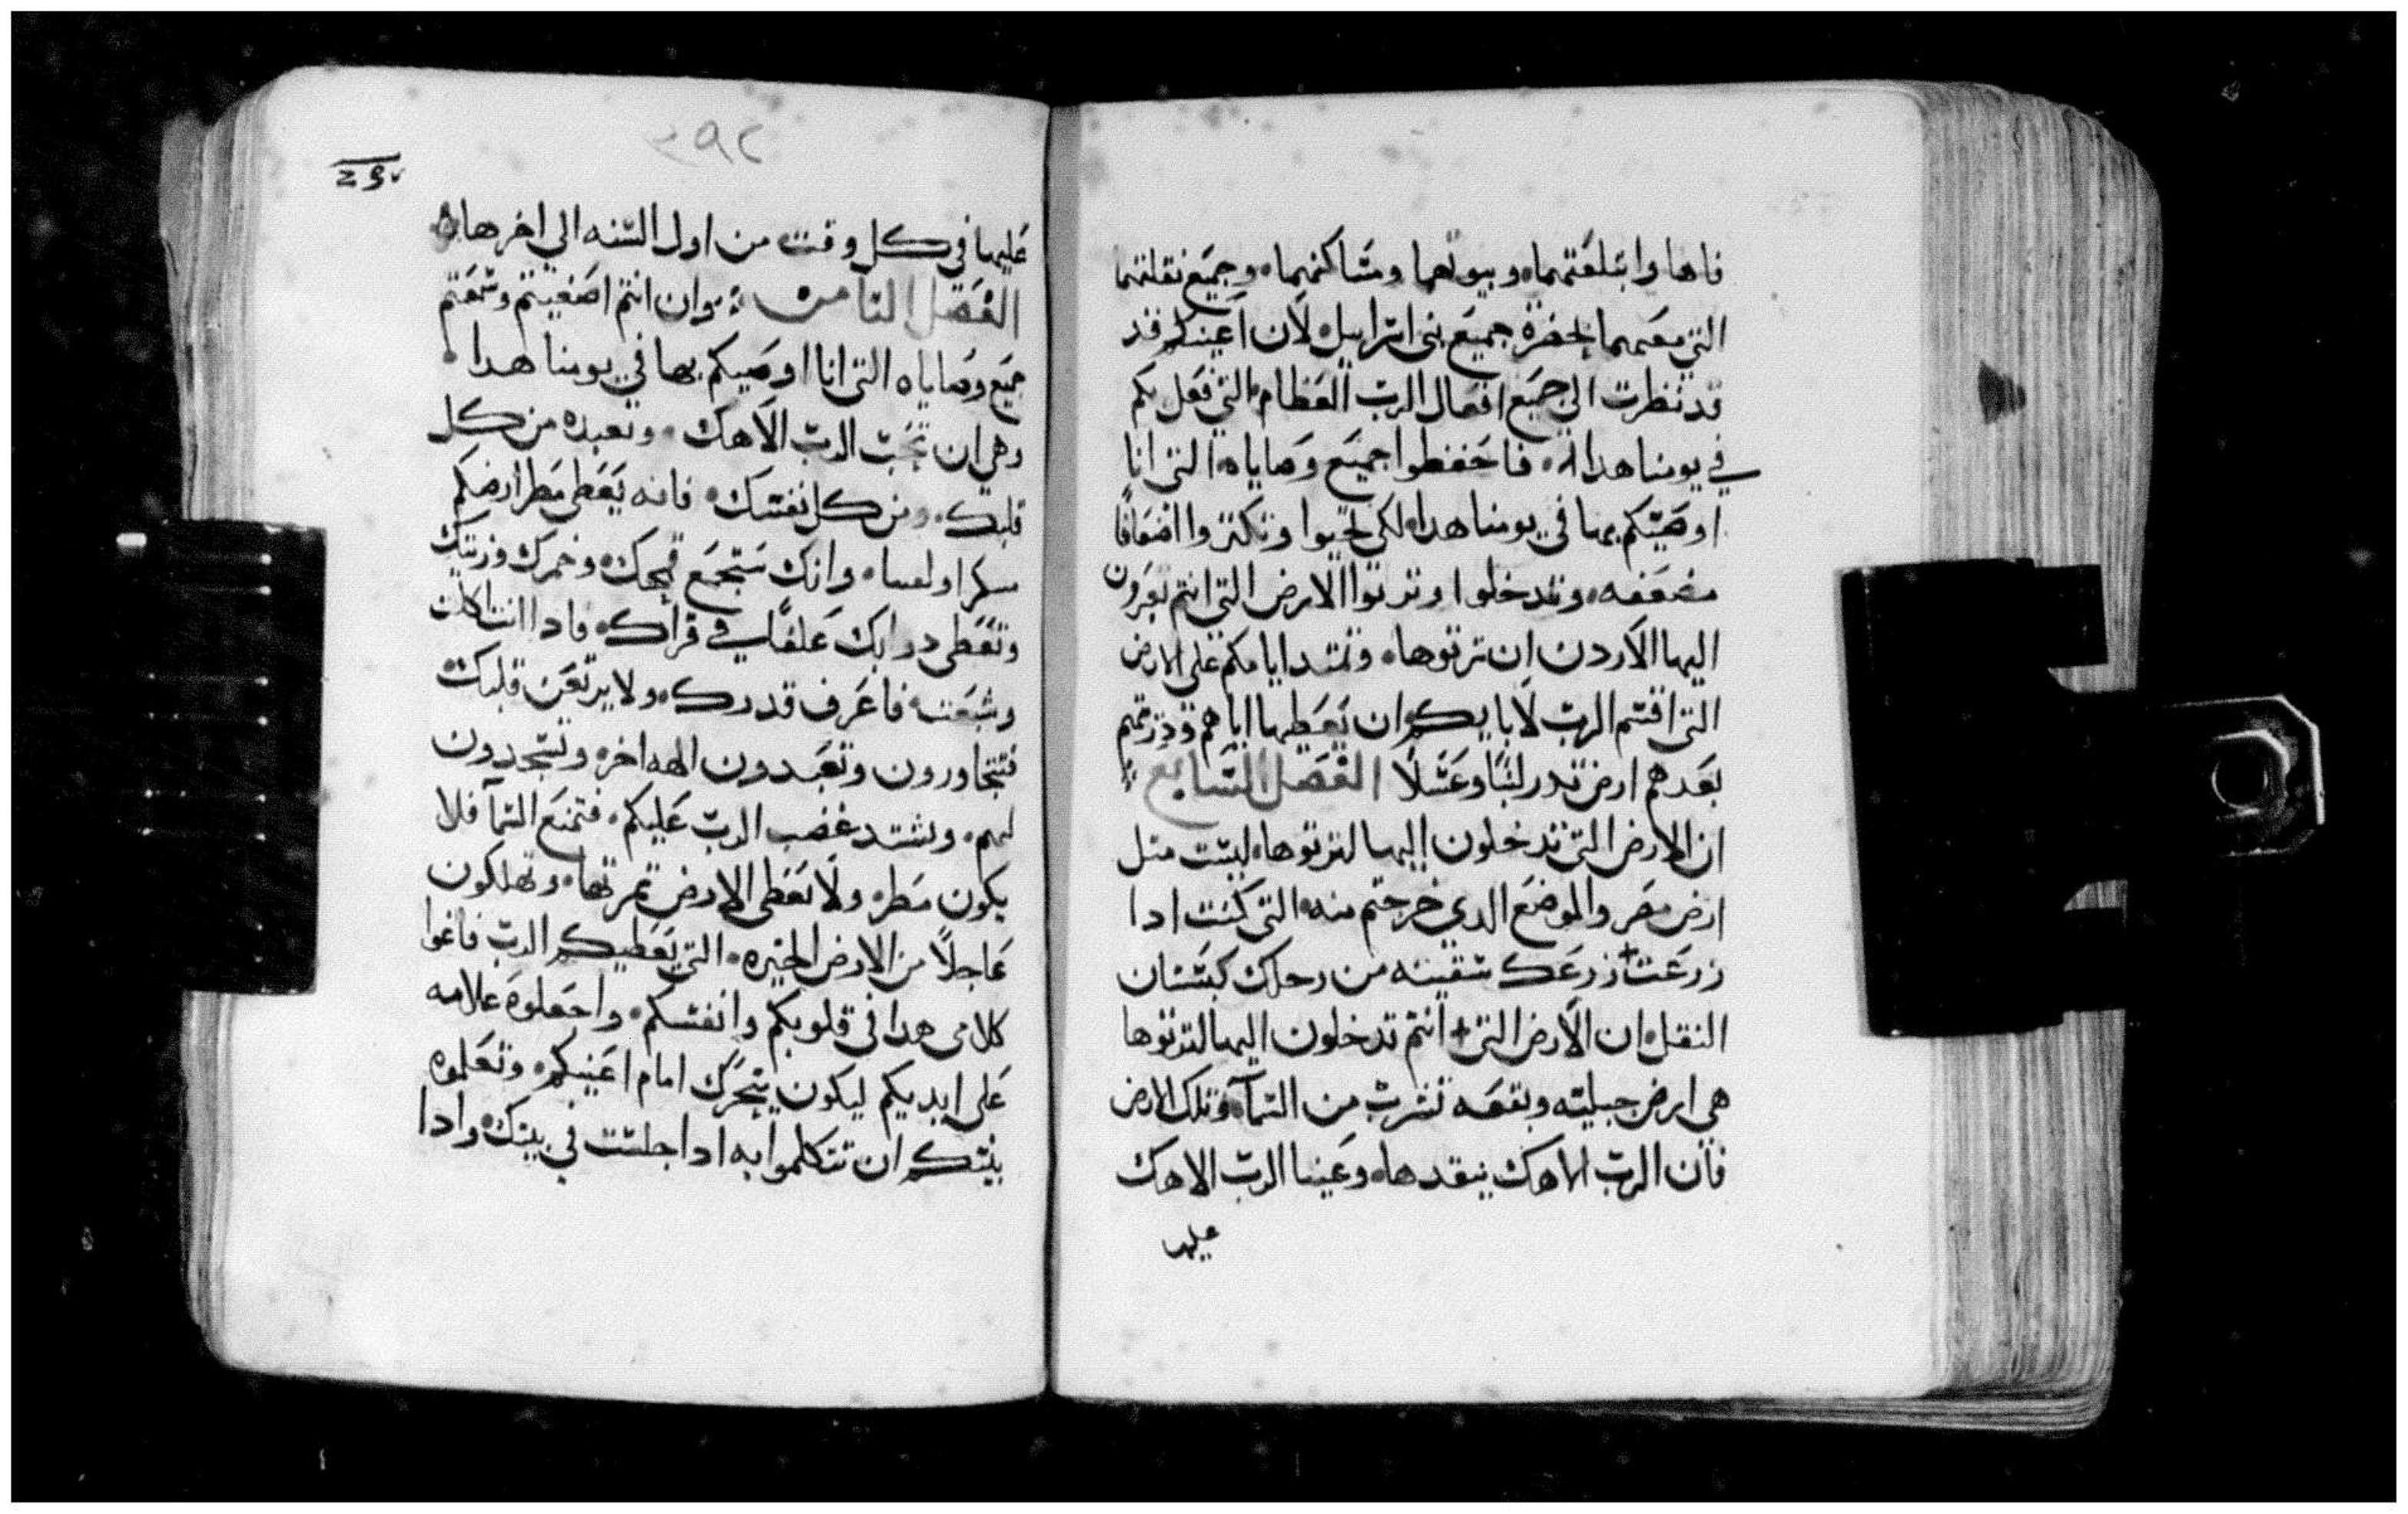 فاها وابتلعتهما وبيوتهما ومساكنهما وجميع نقلتهما
التي معهما بحضرة جميع بني اسراييل لان اعينكم قد
قد نظرت الي جميع افعال الرب العظام التي فعل بكم
في يومنا هدا فاحفظوا جميع وصاياه التي انا
اوصيتكم بها في يومنا هدا لكي تحيوا وتكتروا اضعافا
مضعفه وتدخلوا وترتوا الارض التي انتم تعبرون
اليها الاردن ان ترتوها وتمتد ايامكم علي الارض
التي اقسم الرب لابايكم ان يعطيها اياهم ودريتهم
بعدهم ارض تدر لبنا وعسلا الفصل السابع
ان الارض التي تدخلون اليها لترتوها ليست متل
ارض مصر والموضع الدي خرجتم منه التي كنت ادا
زرعت زرعك سقيته من رحلك كبستان
النقل ان الارض التي انتم تدخلون اليها لترتوها
هي ارض جبليه وبقعه تشرب من السمآ وتلك الارض
فان الرب الاهك يتقدها وعينا الرب الاهك
عليها
٣٩٢
عليها في كل وقت من اول السنه الي اخرها
الفصل التامن وان انتم اصغيتم وسمعتم
جميع وصاياه التي انا اوصيكم بها في يومنا هدا
وهي ان تحب الرب الاهك وتعبده من كل
قلبك ومن كل نفسك فانه يعطي مطر ارضكم
وانك ستجمع قمحك وخمرك وزيتك
وتعطي دوابك علفا في قراك فادا انت اكلت
وشبعت فاعرف قدرك ولا يرتعن قلبك
فتتجاورون وتعبدون الهه اخره وتسجدون
لهم وتشتد غضب الرب عليكم فتمنع السمآ فلا
يكون مطر ولا تعطي الارض تمرتها وتهلكون
عاجلا من الارض الخيره التي يعطيكم الرب فاغوا
كلامي هدا في قلوبكم وانفسكم واجعلوه علامه
علي ايديكم ليكون يتحرك امام اعينكم وتعلموه
بنيكم ان تتكلموا به ادا جلست في بيتك وادا